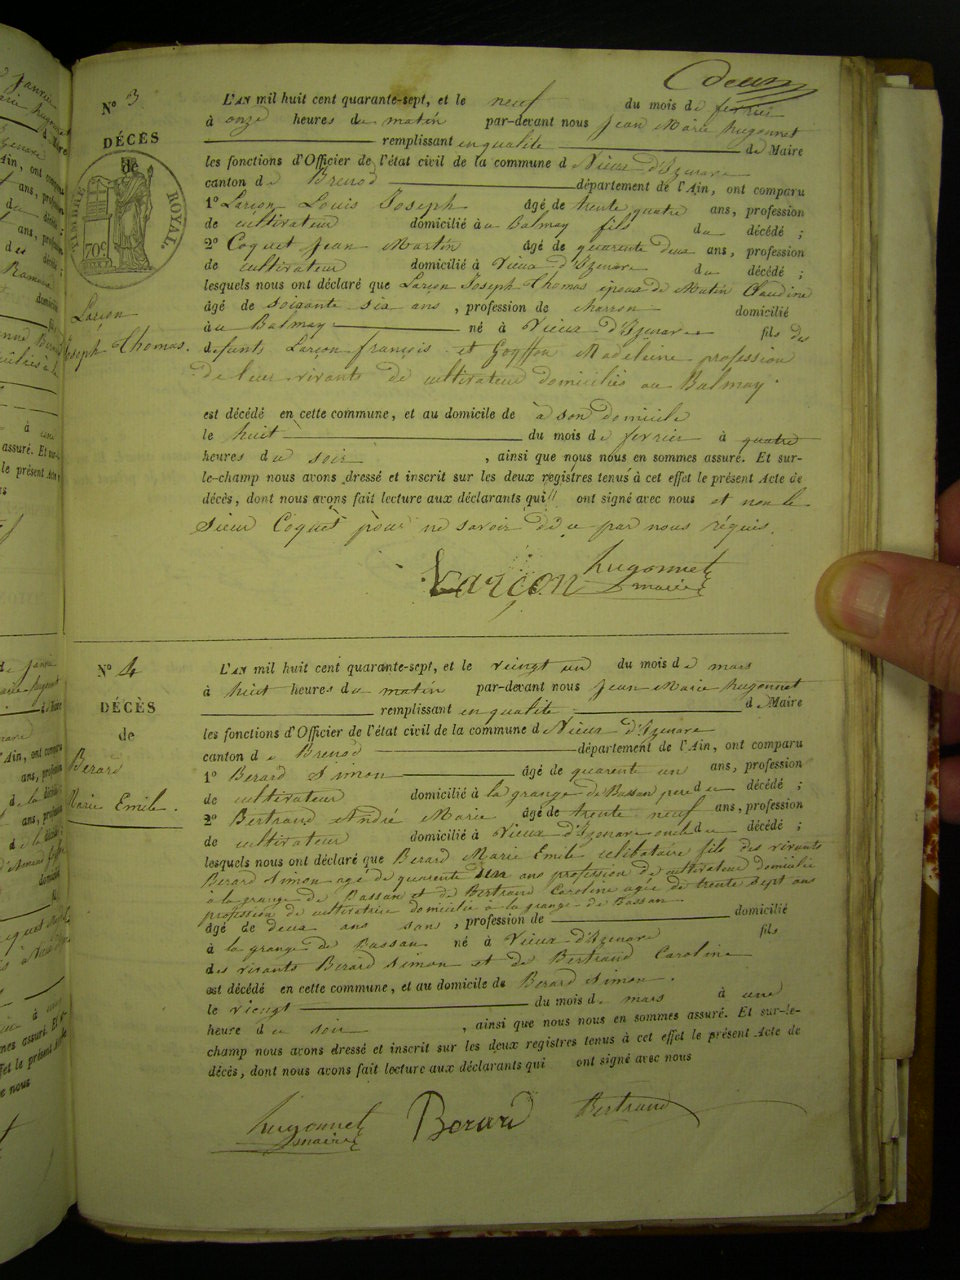 deux
N° 3
DÉCÈS
de
TIMBRE ROYAL
70c
Larçon
Joseph Thomas.
L'AN mil huit cent quarante-sept, et le neuf du mois de fevrier
à onze heures du matin par-devant nous Jean Marie hugonnet
remplissant en qualité de Maire
les fonctions d'Officier de l'état civil de la commune d Vieux d'Izenave
canton de Brenod département de l'Ain, ont comparu
1° Larçon Louis Joseph âgé de trente quatre ans, profession
de cultivateur domicilié au balmay fils du décédé ;
2° Coquet Jean Martin âgé de quarente deux ans, profession
de cultivateur domicilié à Vieux d'Izenave du décédé ;
lesquels nous ont déclaré que Larçon Joseph Thomas epoux de Mutin Claudine
âgé de soigante six ans , profession de charron domicilié
à au Balmay né à Vieux d'Izenave fils des
defunts Larçon françois et Goyffon Madeleine profession
de leur vivants de cultivateur domiciliés au Balmay.
est décédé en cette commune, et au domicile de à son domicile
le huit du mois de fevrier à quatre
heures du soir , ainsi que nous nous en sommes assuré. Et sur-
le-champ nous avons dressé et inscrit sur les deux registres tenus à cet effet le présent Acte de
décès, dont nous avons fait lecture aux déclarants qui ont signé avec nous et non le
Sieur Coquet pour ne savoir de ce par nous réquis.
Larçon hugonnet
maire
N° 4
DÉCÈS
de
Berard
Marie Emile.
L'AN mil huit cent quarante-sept, et le veingt un du mois de mars
à huit heures du matin par-devant nous Jean Marie hugonnet
remplissant en qualité d Maire
les fonctions d'Officier de l'état civil de la commune d Vieux d'Izenave
canton de Brenod département de l'Ain, ont comparu
1° Berard Simon âgé de quarente un ans, profession
de cultivateur domicilié à la grange de Bassan pere du décédé ;
2° Bertrand André Marie âgé de trente neuf ans, profession
de cultivateur domicilié à Vieux d'Izenave oncle du décédé ;
lesquels nous ont déclaré que Berard Marie Emile celibataire fils des vivants
Berard Simon agé de quarente un ans profession de cultivateur domicilié
à la grange de Bassan et de Bertrand Caroline agée de trente sept ans
profession de cultivatrice domicilié à la grange de Bassan
âgé de deux ans sans , profession de domicilié
à la grange de Bassan né à Vieux d'Izenave fils
des vivants Berard Simon et de Bertrand Caroline
est décédé en cette commune, et au domicile de Berard Simon.
le viengt du mois de mars à une
heure du soir , ainsi que nous nous en sommes assuré. Et sur-le-
champ nous avons dressé et inscrit sur les deux registres tenus à cet effet le présent Acte de
décès, dont nous avons fait lecture aux déclarants qui ont signé avec nous
hugonnet Berard Bertrand
maire